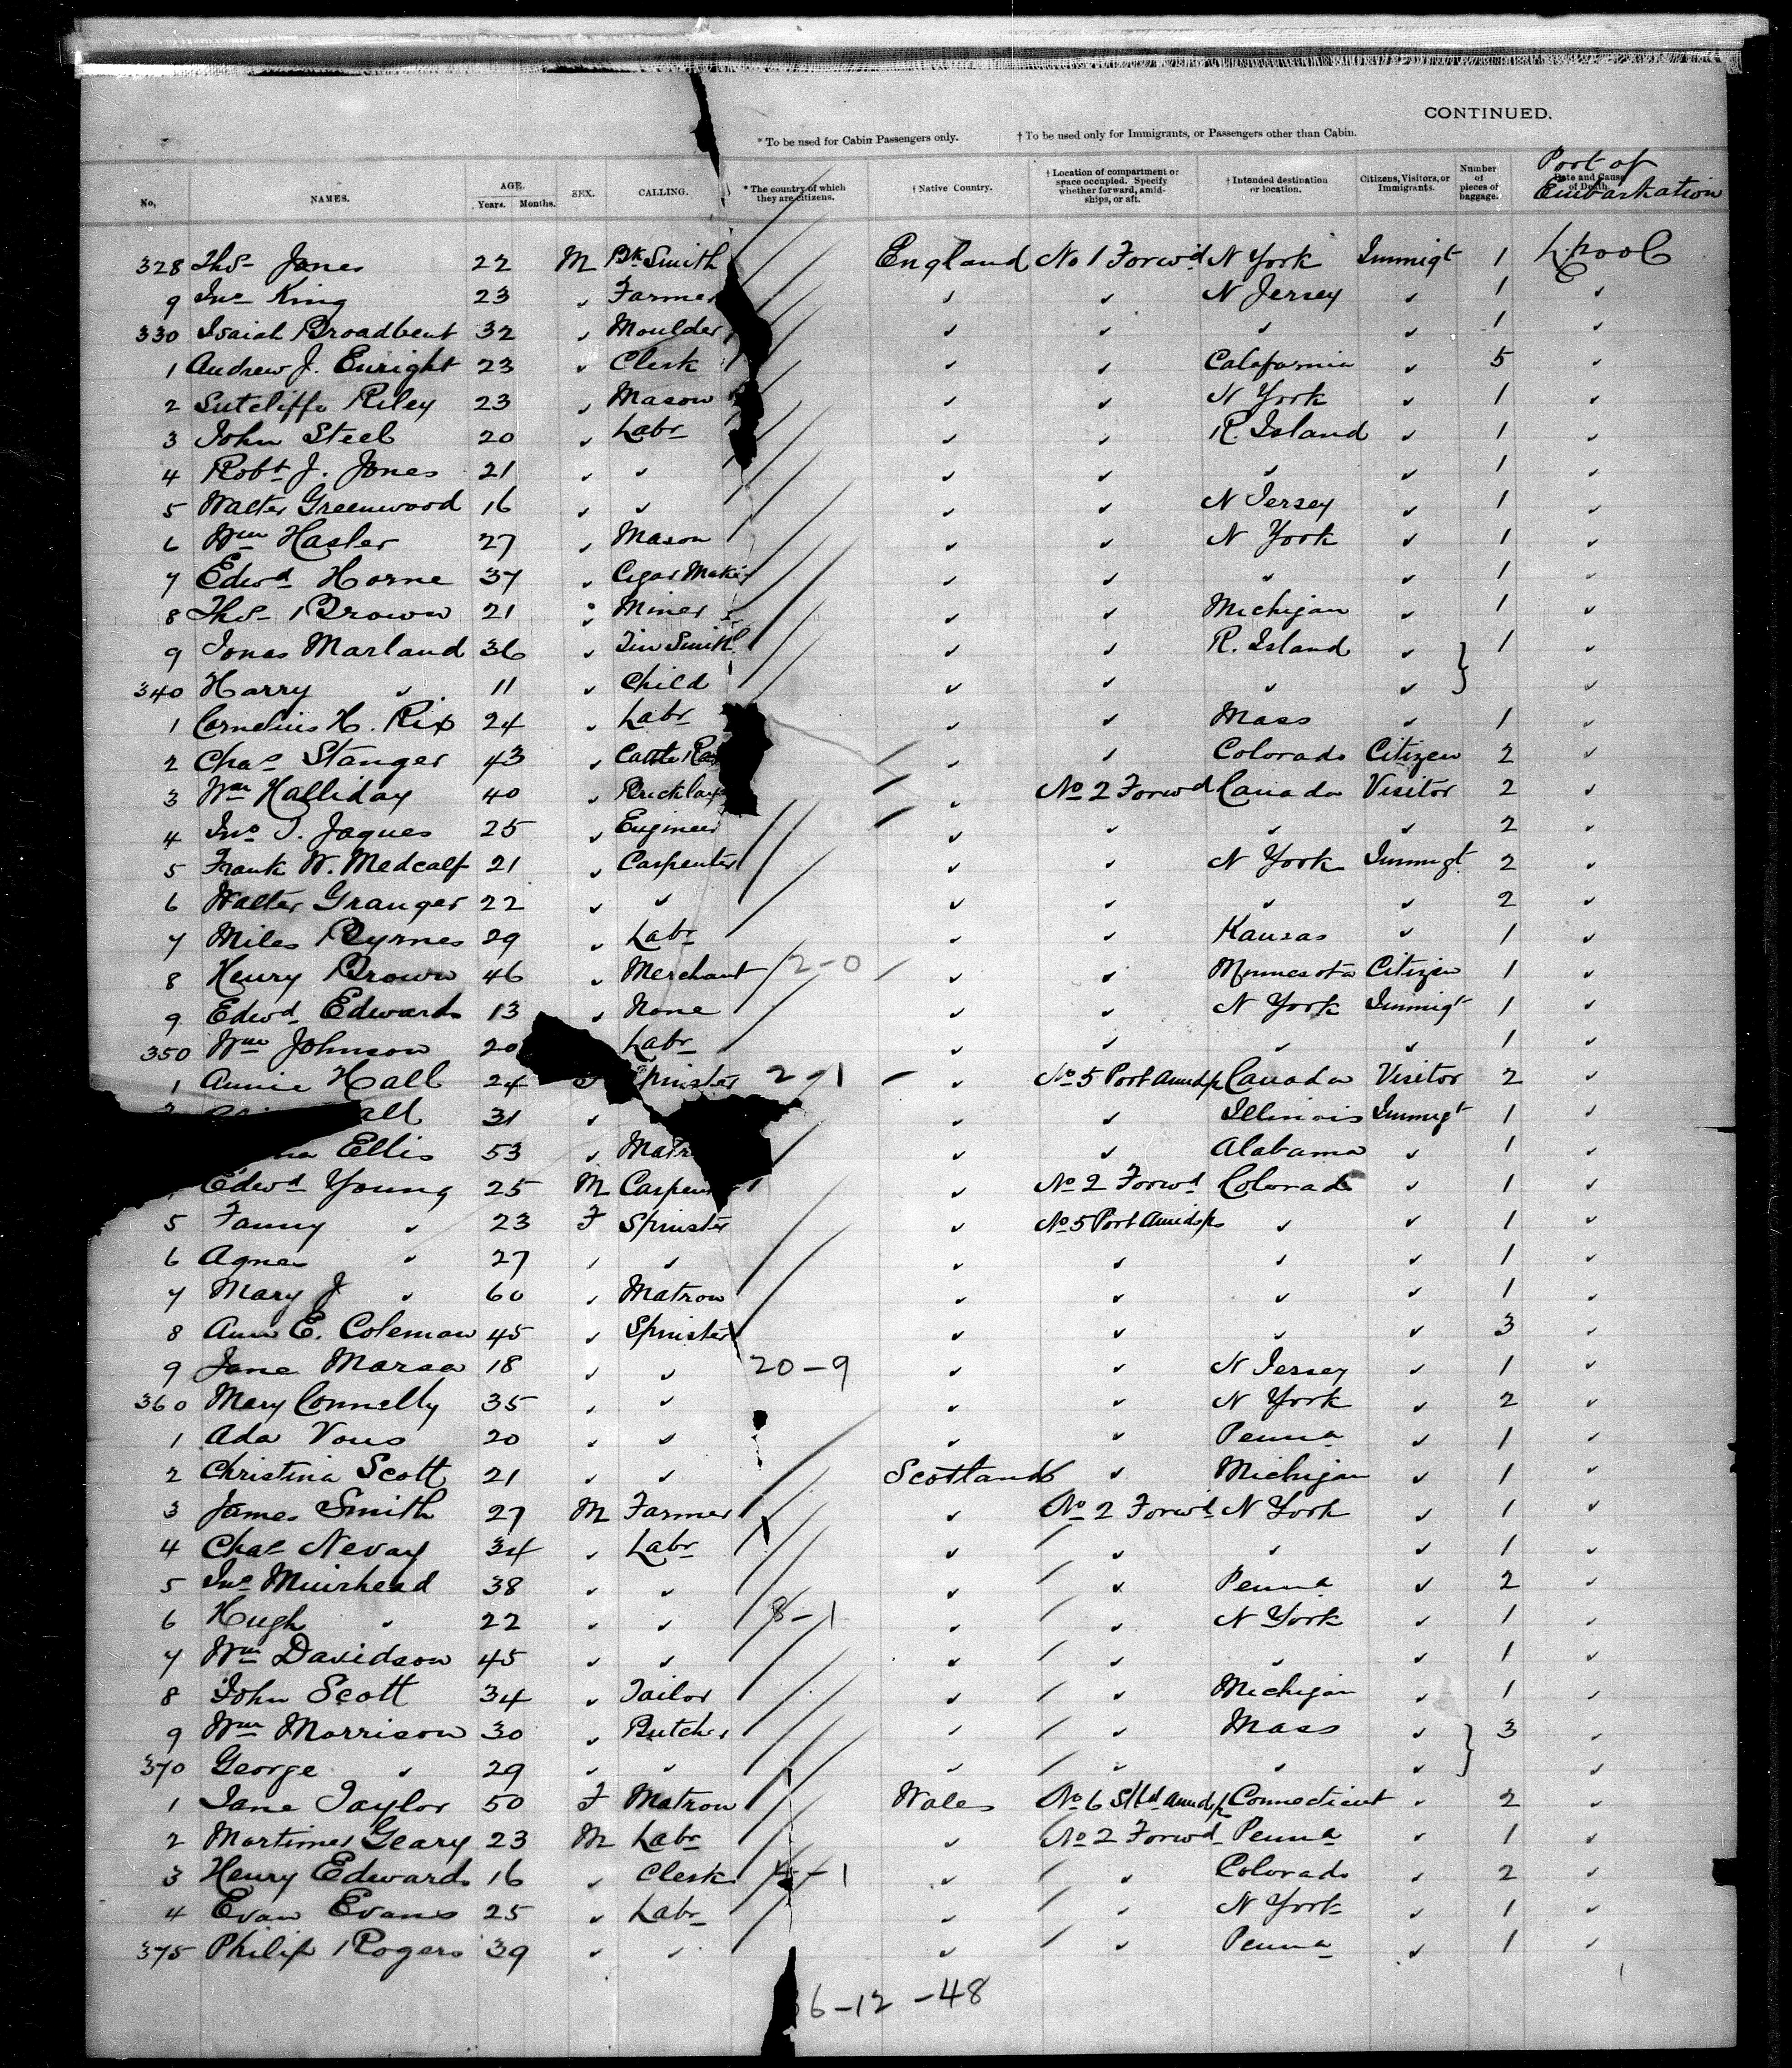 CONTINUED.
* To be used for Cabin Passengers only. † To be used only for Immigrants, or Passengers other than Cabin.
No. NAMES. AGE. Years. Months. SEX. CALLING. * The country of which they are citizens. † Native Country. † Location of compartment or space occupied. Specify whether forward, amidships, or aft. † Intended destination or location. Citizens, Visitors, or Immigrants. Number of pieces of baggage. Date and Cause of Death. Port of Embarkation
328 Thos Jones 22 M Bk Smith England No 1 Forwd N York Immigt 1 L'pool
9 Jno King 23 " Farmer " " N Jersey " 1 "
330 Isaiah Broadbent 32 " Moulder " " " " 1 "
1 Andrew J. Enright 23 " Clerk " " California " 5 "
2 Sutcliffe Riley 23 " Mason " " N York " 1 "
3 John Steel 20 " Labr " " R. Island " 1 "
4 Robt J. Jones 21 " " " " " " 1 "
5 Walter Greenwood 16 " " " " N Jersey " 1 "
6 Wm Hasler 27 " Mason " " N York " 1 "
7 Edwd Horne 37 " Cigar Maker " " " " 1 "
8 Thos Brown 21 " Miner " " Michigan " 1 "
9 Jonas Marland 36 " Tin Smith " " R. Island " 1 "
340 Harry " 11 " Child " " " " "
1 Cornelius H. Rix 24 " Labr " " Mass " 1 "
2 Chas Stanger 43 " Cattle " " Colorado Citizen 2 "
3 Wm Halliday 40 " Bricklay " No 2 Forwd Canada Visitor 2 "
4 Jno T. Jaques 25 " Engineer " " " " 2 "
5 Frank W. Medcalf 21 " Carpenter " " N York Immigt 2 "
6 Walter Granger 22 " " " " " " 2 "
7 Miles Byrnes 29 " Labr " " Kansas " 1 "
8 Henry Brown 46 " Merchant 2-0 " " Minnesota Citizen 1 "
9 Edwd Edwards 13 " None " " N York Immigt 1 "
350 Wm Johnson 20 Labr " " " " 1 "
1 Annie Hall 24 F Spinster 2-1 " No 5 Port Amidsp Canada Visitor 2 "
all 31 " " " Illinois Immigt 1 "
Ellis 53 " Matr " " Alabama " 1 "
Edwd Young 25 M Carpen " No 2 Forwd Colorado " 1 "
5 Fanny " 23 F Spinster " No 5 Port Amidsps " " 1 "
6 Agnes " 27 " " " " " " 1 "
7 Mary J " 60 " Matron " " " " 1 "
8 Ann E. Coleman 45 " Spinster " " " " 3 "
9 Jane Marsa 18 " " 20-9 " " N Jersey " 1 "
360 Mary Connelly 35 " " " " N York " 2 "
1 Ada Vous 20 " " " " Penna " 1 "
2 Christina Scott 21 " " Scotland " Michigan " 1 "
3 James Smith 27 M Farmer " No 2 Forwd N York " 1 "
4 Chas Nevay 34 " Labr " " " " 1 "
5 Jno Muirhead 38 " " " " Penna " 2 "
6 Hugh " 22 " " 8-1 " " N York " 1 "
7 Wm Davidson 45 " " " " " " 1 "
8 John Scott 34 " Tailor " " Michigan " 1 "
9 Wm Morrison 30 " Butcher " " Mass " 3 "
370 George " 29 " " " " " " "
1 Jane Taylor 50 F Matron Wales No 6 Stbd Amidsp Connecticut " 2 "
2 Mortimer Geary 23 M Labr " No 2 Forwd Penna " 1 "
3 Henry Edwards 16 " Clerk 4-1 " " Colorado " 2 "
4 Evan Evans 25 " Labr " " N York " 1 "
375 Philip Rogers 39 " " " " Penna " 1 "
6-12-48